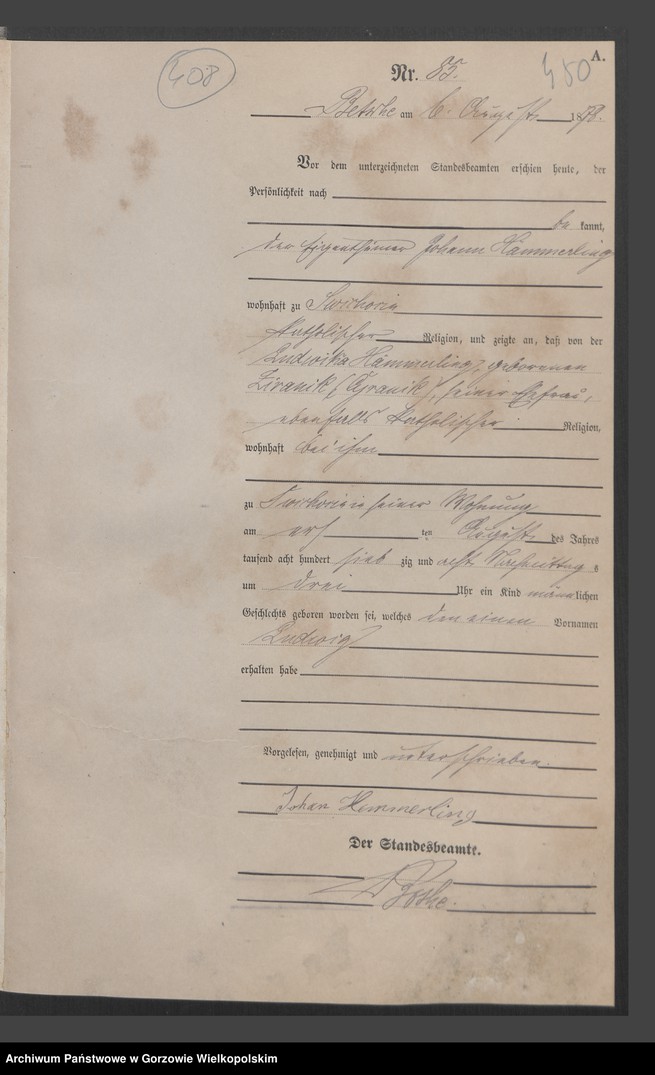 408
450
A.
Nr. 85.
Betsche am 6. August 1878.
Vor dem unterzeichneten Standesbeamten erschien heute, der
Persönlichkeit nach
be kannt,
der Eigenthümer Johann Hämmerling
wohnhaft zu
katholischer Religion, und zeigte an, daß von der
Ludwika Hämmerling, geborenen
Ziranik (Cyranik), seiner Ehefrau,
ebenfalls katholischer Religion,
wohnhaft bei ihm
zu seiner Wohnung
am ten August des Jahres
tausend acht hundert sieb zig und acht Nachmittag s
um drei Uhr ein Kind männlichen
Geschlechts geboren worden sei, welches den einen Vornamen
Ludwig
erhalten habe
Vorgelesen, genehmigt und unterschrieben.
Johan Hemmerling
Der Standesbeamte.
Archiwum Państwowe w Gorzowie Wielkopolskim